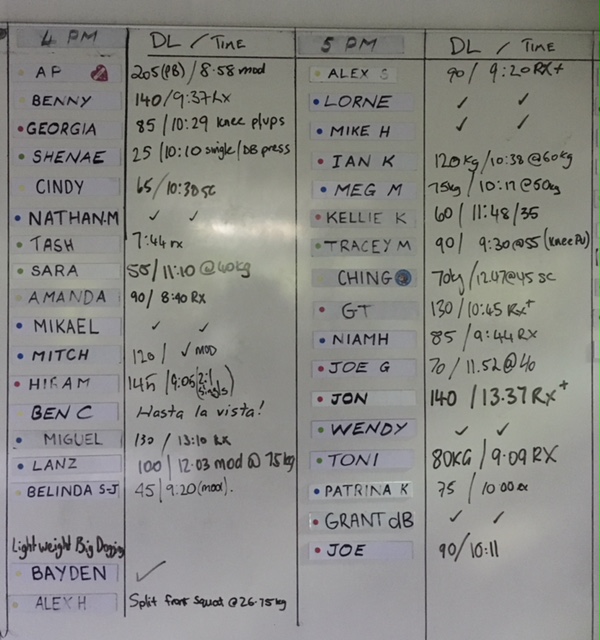 4 PM DL / TIME
AP 205(PB) / 8.58 mod
BENNY 140 / 9:37 Rx
GEORGIA 85 / 10:29 knee p/ups
SHENAE 25 / 10:10 single / DB press
CINDY 65 / 10:38 sc
NATHAN.M ✓ ✓
TASH 7:44 rx
SARA 55 / 11:10 @40kg
AMANDA 90 / 8:40 Rx
MIKAEL ✓ ✓
MITCH 120 / ✓ MOD
HIRAM 145 / 9:06 (2:1 singles)
BEN C Hasta la vista!
MIGUEL 130 / 13:10 Rx
LANZ 100 / 12.03 mod @ 75kg
BELINDA S-J 45 / 9:20 (mod).
Lightweight Big
BAYDEN ✓
ALEX H Split front squat @ 26.75kg
5 PM DL / TIME
ALEX S 90 / 9:20 RX+
LORNE ✓ ✓
MIKE H ✓ ✓
IAN K 120kg / 10:38 @60kg
MEG M 75kg / 10:17 @50kg
KELLIE K 60 / 11:48 / 35
TRACEY M 90 / 9:30 @55 (Knee PU)
CHING 70kg / 12.47 @45 SC
GT 130 / 10:45 Rx+
NIAMH 85 / 9:44 RX
JOE G 70 / 11.52 @40
JON 140 / 13.37 Rx+
WENDY ✓ ✓
TONI 80KG / 9.09 RX
PATRINA K 75 / 10:00
GRANT dB ✓ ✓
JOE 90 / 10:11